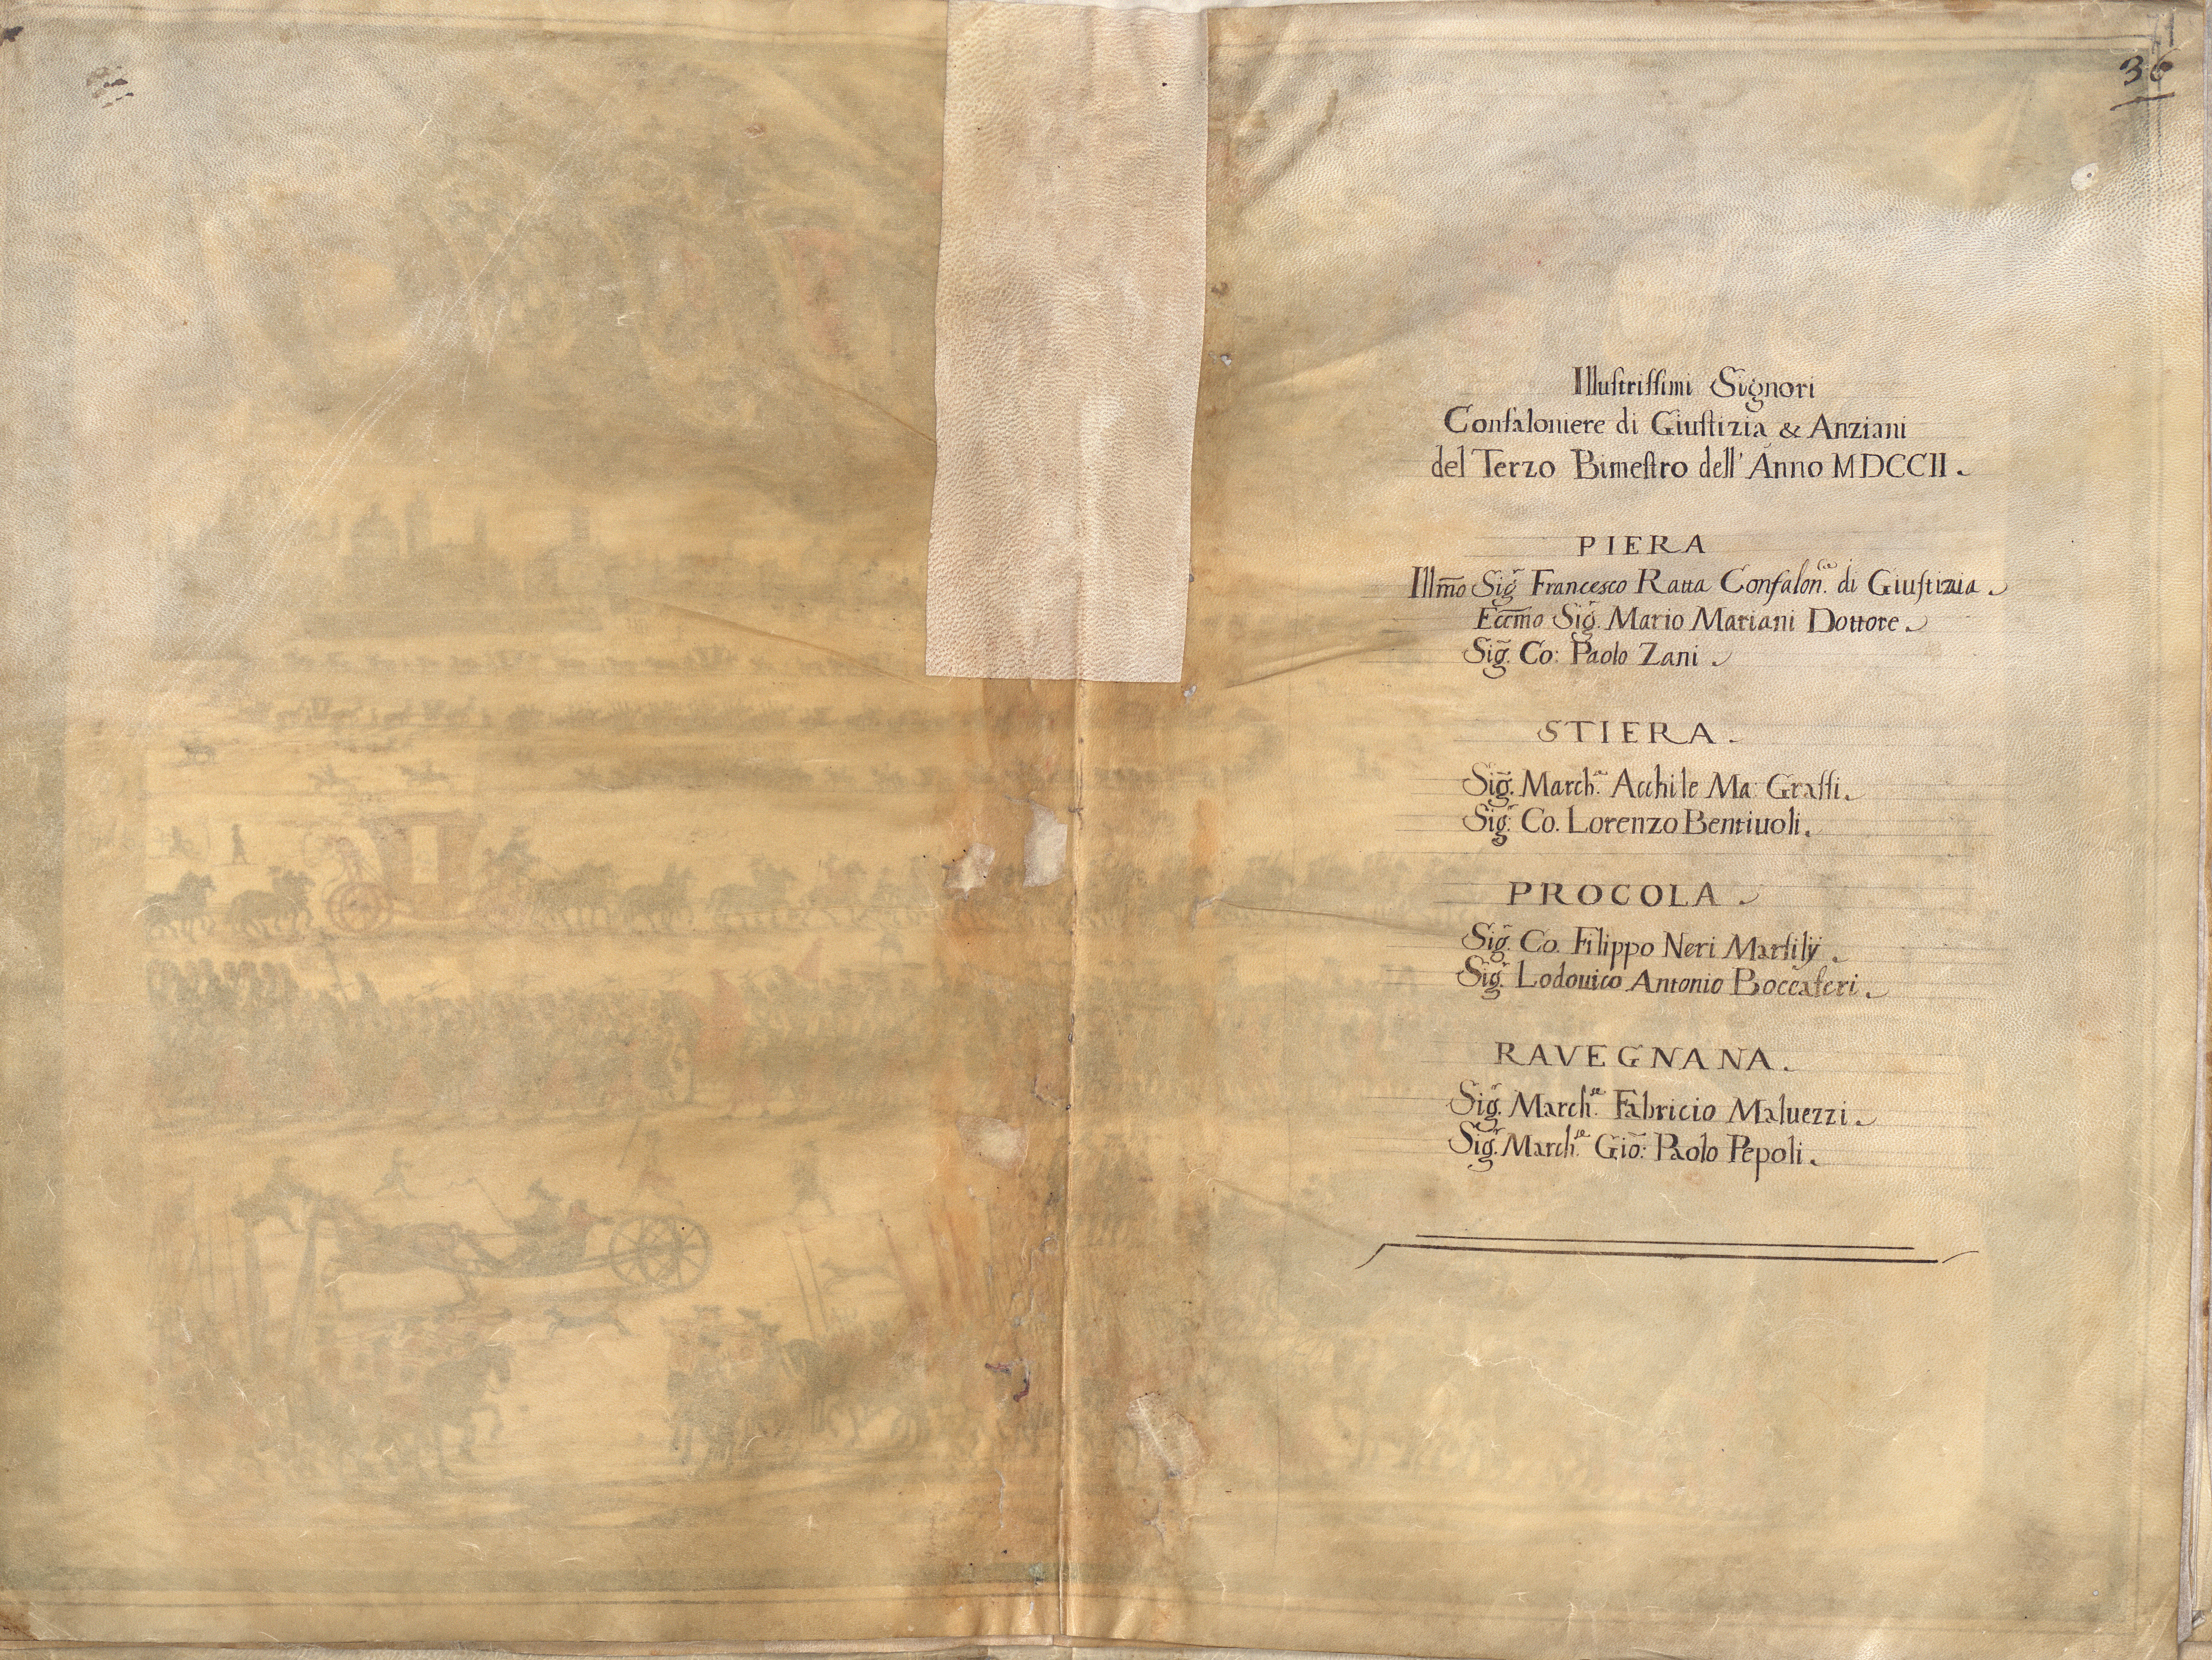 36
Illustrissimi Signori
Confaloniere di Giustizia & Anziani
del Terzo Bimestro dell' Anno MDCCII.
PIERA
Illm̃o Sig.r Francesco Ratta Confalon.re di Giustizia.
Eccm̃o Sig.r Mario Mariani Dottore.
Sig.r Co: Paolo Zani.
STIERA.
Sig.r March.e Acchile Ma: Grassi.
Sig.r Co. Lorenzo Bentiuoli.
PROCOLA.
Sig.r Co. Filippo Neri Marsilÿ.
Sig.r Lodouico Antonio Boccaferi.
RAVEGNANA.
Sig.r March.se Fabricio Maluezzi.
Sig.r March.se Gio: Paolo Pepoli.